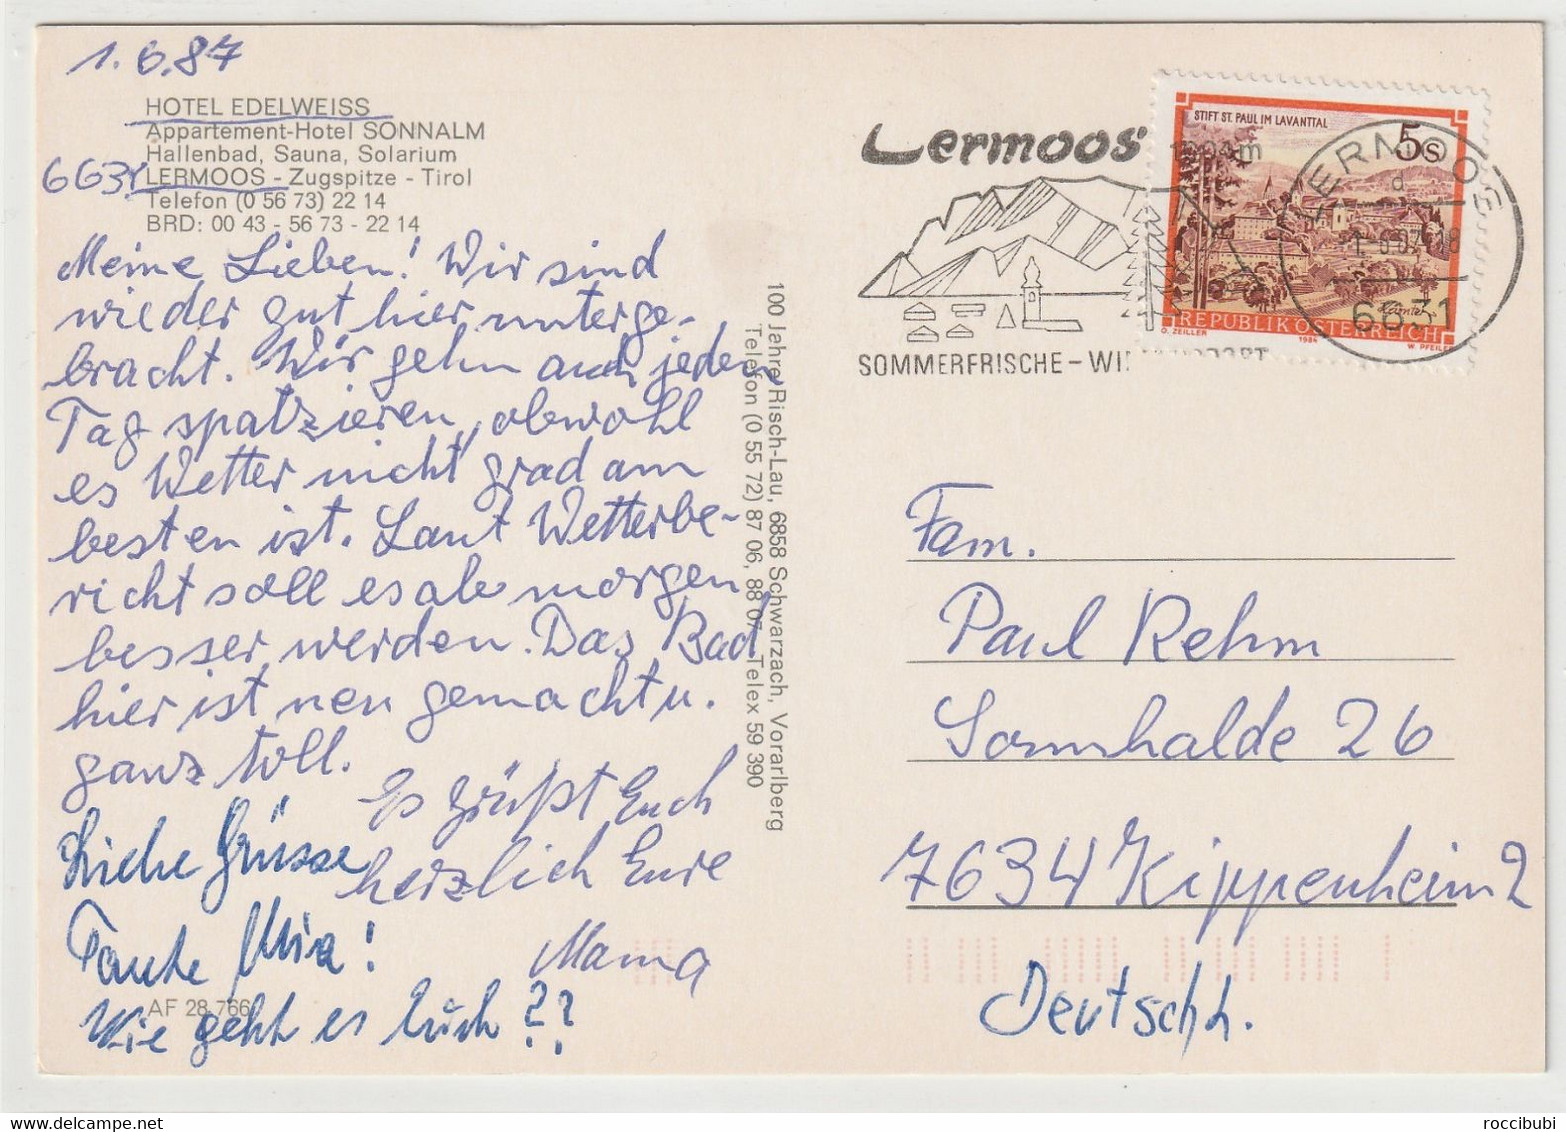 1.6.87
HOTEL EDELWEISS
Appartement-Hotel SONNALM
Hallenbad, Sauna, Solarium
6631 LERMOOS - Zugspitze - Tirol
Telefon (0 56 73) 22 14
BRD: 00 43 - 56 73 - 22 14
Meine Lieben! Wir sind
wieder gut hier unterge-
bracht. Wir gehn auch jeden
Tag spatzieren, obwohl
es Wetter nicht grad am
besten ist. Laut Wetterbe-
richt soll es ab morgen
besser werden. Das Bad
hier ist neu gemacht u.
ganz toll.
Es grüßt Euch
herzlich Eure
Mama
Liebe Grüsse
Tante Mia!
Wie geht es Euch??
AF 28.766
100 Jahre Risch-Lau, 6858 Schwarzach, Vorarlberg
Telefon (0 55 72) 87 06, 88 07 Telex 59 390
Lermoos
SOMMERFRISCHE-WI
STIFT ST. PAUL IM LAVANTTAL
5s
REPUBLIK ÖSTERREICH
O. ZEILLER 1984 W. PFEILER
LERMOOS
d
6631
Fam.
Paul Rehm
Sonnhalde 26
7634 Kippenheim 2
Deutschl.
roccibubi